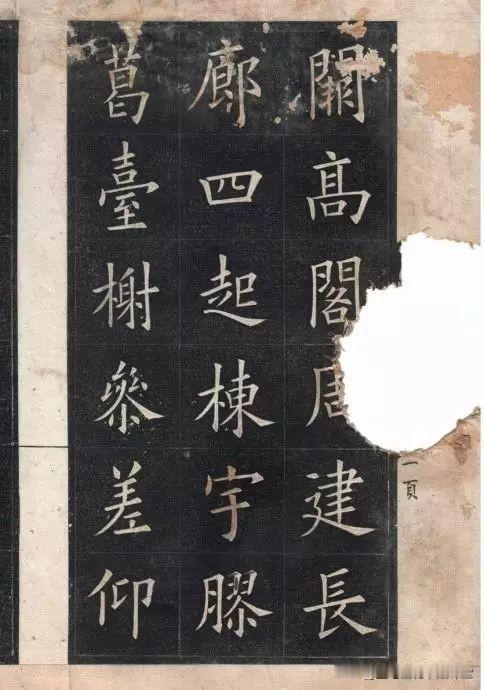 闕高閣周建長
廊四起棟宇膠
葛臺榭參差仰
一頁